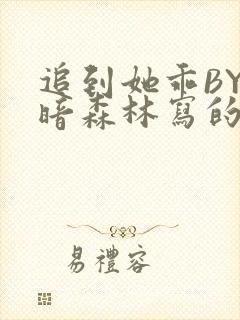 追到她乖BY
暗森林寫的
易禮容